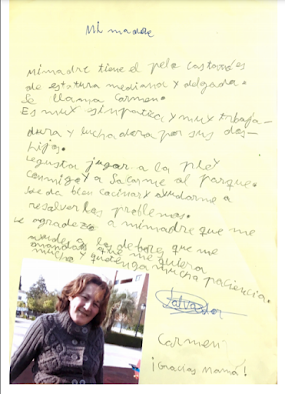 Mi madre
Mi madre tiene el pelo castaño es
de estatura mediana y delgada.
Se llama Carmen.
Es muy simpatica y muy trabaja-
dora y luchadora por sus dos
hijos.
le gusta jugar a la pley
conmigo y a sacarme al parque.
Se da bien cocinar y ayudarme a
resolver los problemas.
le agradezo a mi madre que me
ayude a los deberes que me
mandan que me quiera
mucho y que tenga mucha paciencia.
Salvador
Carmen
¡Gracias Mamá!